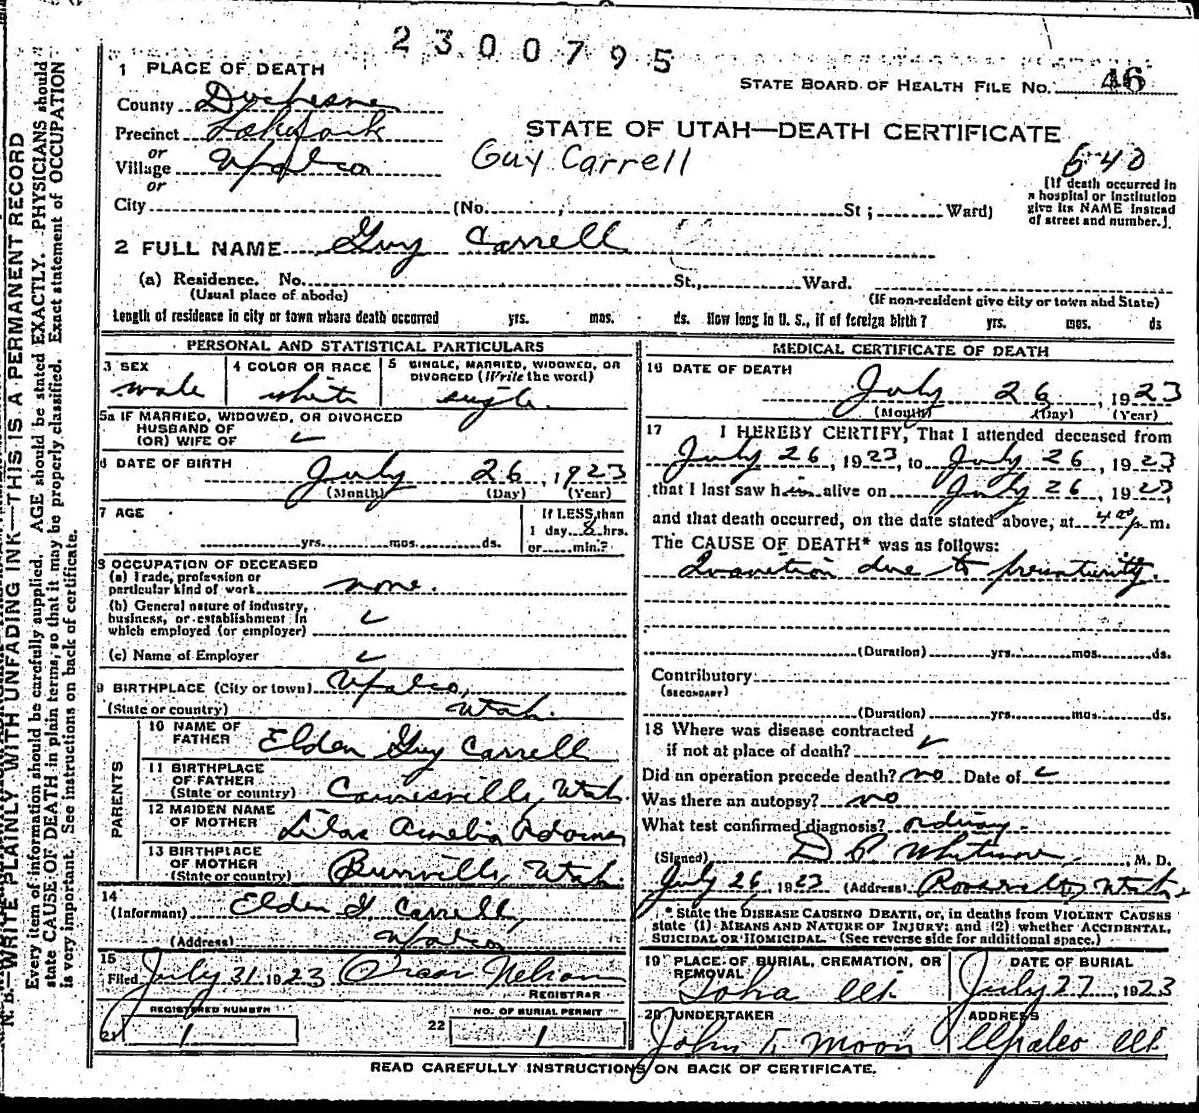 2300795
1 PLACE OF DEATH
STATE BOARD OF HEALTH FILE NO. 46
County Duchesne
STATE OF UTAH—DEATH CERTIFICATE
Precinct
or
Village Upalco
Guy Carrell
640
or
[If death occurred in
a hospital or institution
give its NAME instead
of street and number.]
City (No. St; Ward)
2 FULL NAME Guy Carrell
(a) Residence. No. St., Ward.
(Usual place of abode)
(If non-resident give city or town and State)
Length of residence in city or town where death occurred yrs. mos. ds. How long in U. S., if of foreign birth? yrs. mos. ds
PERSONAL AND STATISTICAL PARTICULARS
3 SEX
male
4 COLOR OR RACE
white
5 SINGLE, MARRIED, WIDOWED, OR
DIVORCED (Write the word)
single
5a IF MARRIED, WIDOWED, OR DIVORCED
HUSBAND OF
(OR) WIFE OF
6 DATE OF BIRTH
July 26, 1923
(Month) (Day) (Year)
7 AGE
yrs. mos. ds.
If LESS than
1 day 8 hrs.
or min.?
8 OCCUPATION OF DECEASED
(a) Trade, profession or
particular kind of work none.
(b) General nature of industry,
business, or establishment in
which employed (or employer)
(c) Name of Employer
9 BIRTHPLACE (City or town) Upalco,
(State or country) Utah.
PARENTS
10 NAME OF
FATHER Elden Guy Carrell
11 BIRTHPLACE
OF FATHER
(State or country) Utah.
12 MAIDEN NAME
OF MOTHER Lilas Amelia Adams
13 BIRTHPLACE
OF MOTHER
(State or country) Utah.
14
(Informant) Elden G. Carrell,
(Address) Upalco
15
Filed July 31 1923 Oscar Nelson
REGISTRAR
21 REGISTERED NUMBER
1
22 NO. OF BURIAL PERMIT
1
MEDICAL CERTIFICATE OF DEATH
16 DATE OF DEATH
July 26, 1923
(Month) (Day) (Year)
17 I HEREBY CERTIFY, That I attended deceased from
July 26, 1923, to July 26, 1923
that I last saw him alive on July 26, 1923,
and that death occurred, on the date stated above, at 4 00 p m.
The CAUSE OF DEATH* was as follows:
Inanition due to prematurity.
(Duration) yrs. mos. ds.
Contributory
(SECONDARY)
(Duration) yrs. mos. ds.
18 Where was disease contracted
if not at place of death?
Did an operation precede death? no Date of
Was there an autopsy? no
What test confirmed diagnosis?
(Signed) Whitmore, M. D.
July 26, 1923 (Address) Roosevelt, Utah.
* State the DISEASE CAUSING DEATH, or, in deaths from VIOLENT CAUSES
state (1) MEANS AND NATURE OF INJURY; and (2) whether ACCIDENTAL,
SUICIDAL OR HOMICIDAL. (See reverse side for additional space.)
19 PLACE OF BURIAL, CREMATION, OR
REMOVAL
Ioka Ut.
DATE OF BURIAL
July 27, 1923
20 UNDERTAKER
John T. Moon
ADDRESS
Upalco Ut
READ CAREFULLY INSTRUCTIONS ON BACK OF CERTIFICATE.
N. B.—WRITE PLAINLY WITH UNFADING INK—THIS IS A PERMANENT RECORD
Every item of information should be carefully supplied. AGE should be stated EXACTLY. PHYSICIANS should
state CAUSE OF DEATH in plain terms, so that it may be properly classified. Exact statement of OCCUPATION
is very important. See instructions on back of certificate.